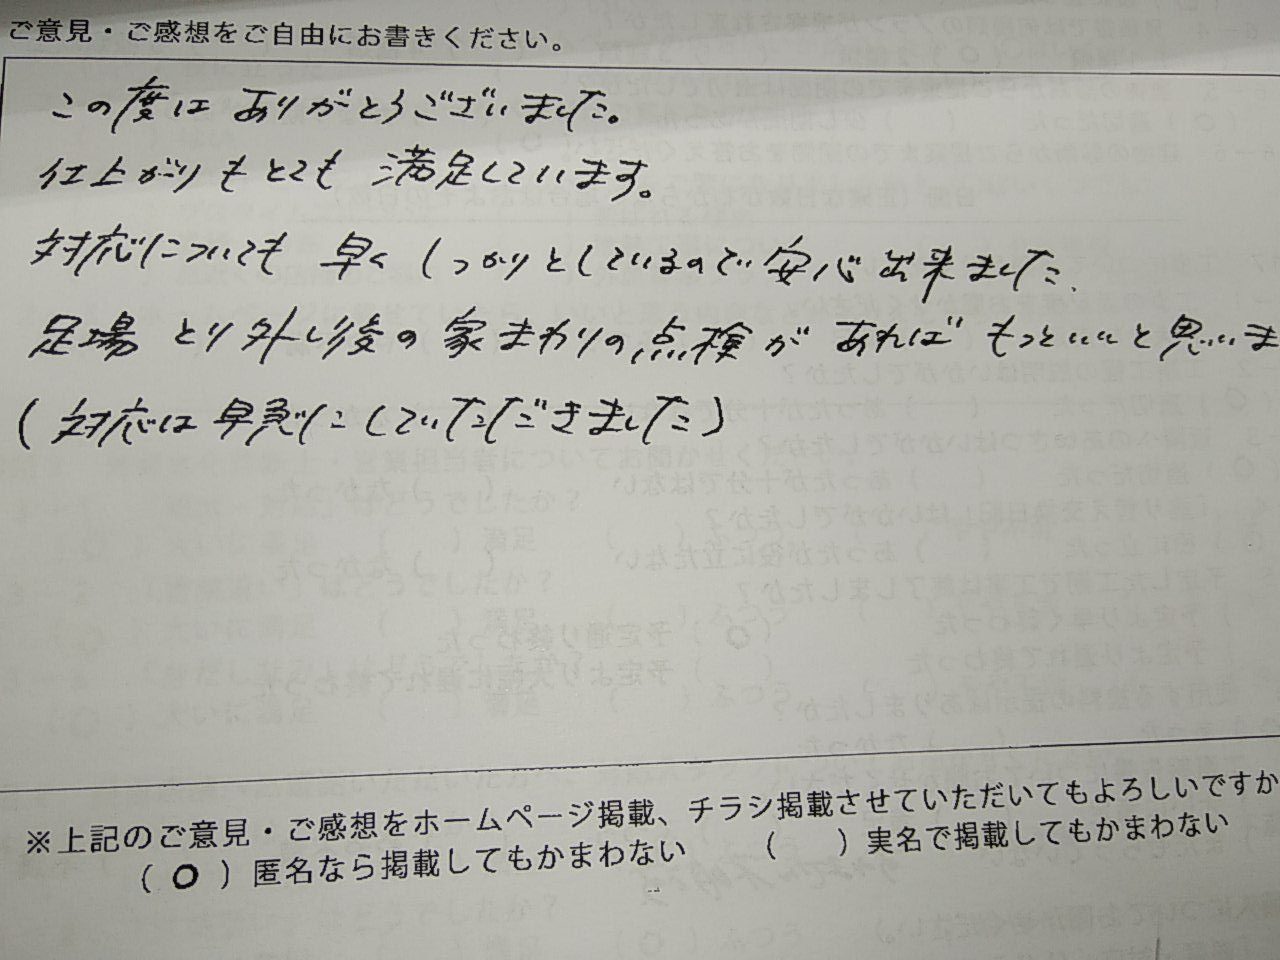 ご意見・ご感想をご自由にお書きください。
この度は ありがとうございました。
仕上がりもとても 満足しています。
対応についても 早く しっかりとしているので 安心出来ました.
足場 とり外し後の 家まわりの点検が あれば もっといいと思いま
(対応は早急にしていただきました)
※上記のご意見・ご感想をホームページ掲載、チラシ掲載させていただいてもよろしいですか
( ○ ) 匿名なら掲載してもかまわない ( ) 実名で掲載してもかまわない